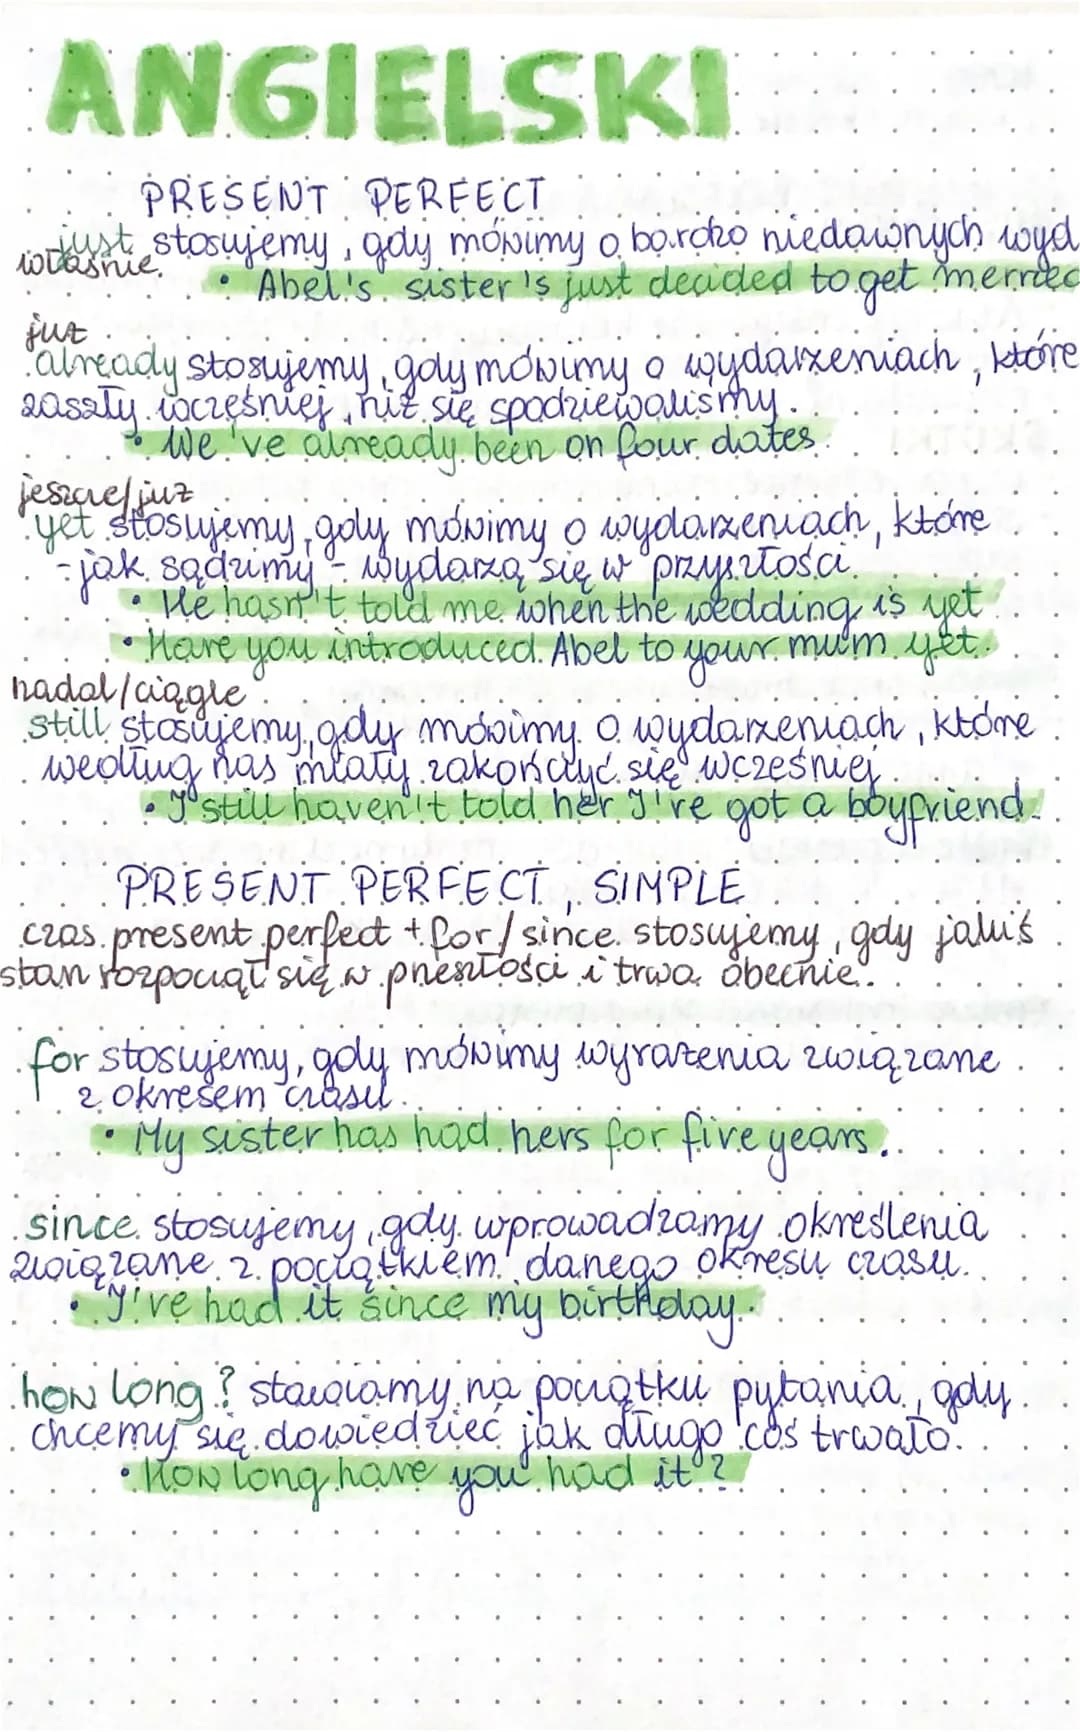 ANGIELSKI
PRESENT PERFECT
just stosujemy, gdy mówimy o bardzo niedawnych wyd
właśnie
• Abel's sister's just decided to get merried
już
already stosujemy, gdy mówimy o wydarzeniach, które
zaszły wcześniej, niż się spodziewaliśmy.
• We've already been on four dates.
jeszcze/już
yet stosujemy, gdy mówimy o wydarzeniach, które
- jak sądzimy - wydarzą się w przyszłości.
• He hasn't told me when the wedding is yet
• Have you introduced Abel to your mum yet.
nadal/ciągle
still stosujemy, gdy mówimy o wydarzeniach, które
według nas miały zakończyć się wcześniej.
• I still haven't told her I've got a boyfriend.
PRESENT PERFECT, SIMPLE
czas present perfect + for/since stosujemy, gdy jakiś
stan rozpoczął się w przeszłości i trwa obecnie.
for stosujemy, gdy mówimy wyrażenia związane
z okresem czasu.
• My sister has had hers for five years.
since stosujemy, gdy wprowadzamy określenia
związane z początkiem danego okresu czasu.
• I've had it since my birthday.
how long? stawiamy na początku pytania, gdy
chcemy się dowiedzieć jak długo coś trwało.
• How long have you had it?